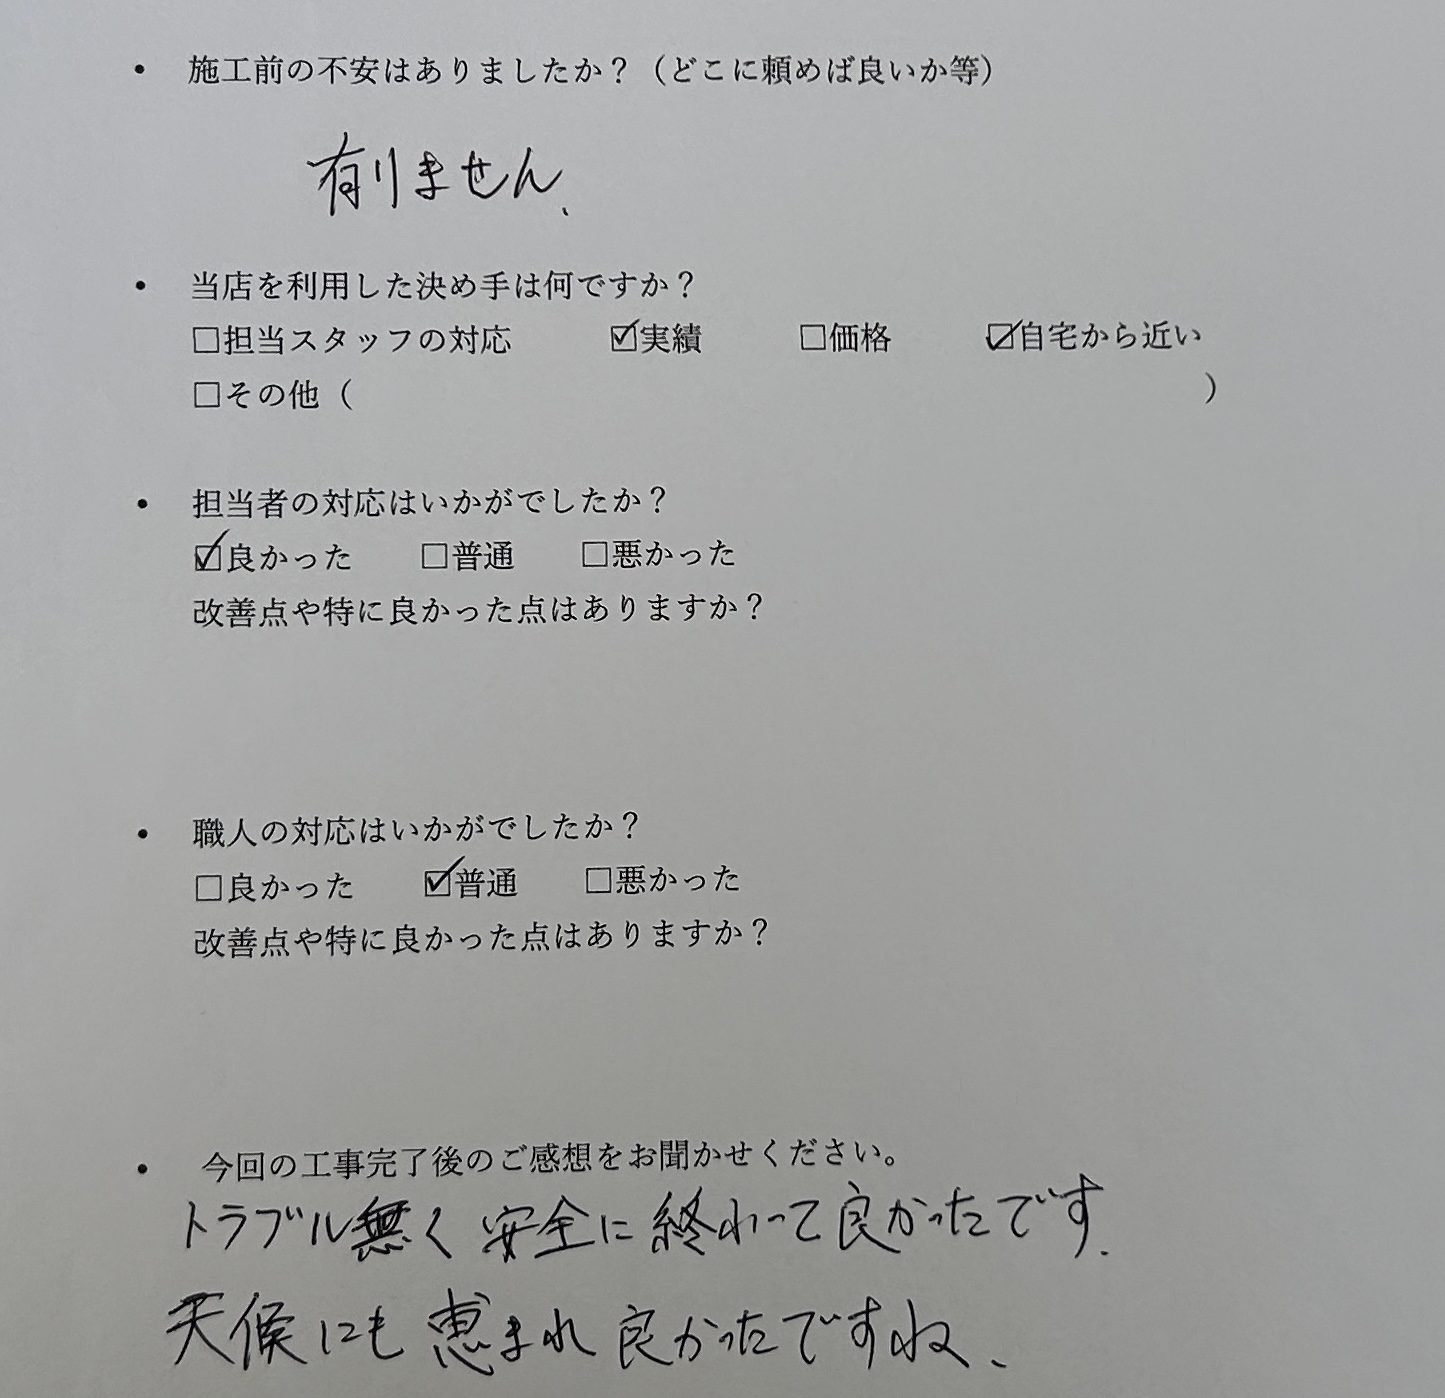 • 施工前の不安はありましたか？（どこに頼めば良いか等）
有りません、
• 当店を利用した決め手は何ですか？
☐担当スタッフの対応 ☑実績 ☐価格 ☑自宅から近い
☐その他（ ）
• 担当者の対応はいかがでしたか？
☑良かった ☐普通 ☐悪かった
改善点や特に良かった点はありますか？
• 職人の対応はいかがでしたか？
☐良かった ☑普通 ☐悪かった
改善点や特に良かった点はありますか？
• 今回の工事完了後のご感想をお聞かせください。
トラブル無く安全に終わって良かったです.
天候にも恵まれ良かったですね、